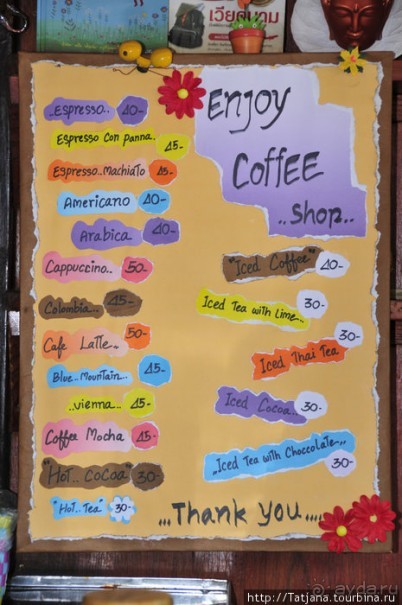 เวียดนาม
Enjoy
Coffee
..Shop..
..Espresso.. 40-
Espresso Con Panna.. 45-
Espresso..Machiato 45-
Americano 40-
Arabica 40-
Cappuccino.. 50-
Colombia... 45-
Cafe Latte.. 50-
Blue..Mountain.. 45-
..Vienna.. 45-
Coffee Mocha 45-
"Hot.. Cocoa" 30-
"Hot..Tea" 30-
"Iced Coffee" 40-
Iced Tea with Lime.. 30-
Iced Thai Tea 30-
Iced Cocoa.. 30-
,,Iced Tea with Chocolate,, 30-
...Thank you....
ayda.ru
http://Tatjana.tourbina.ru